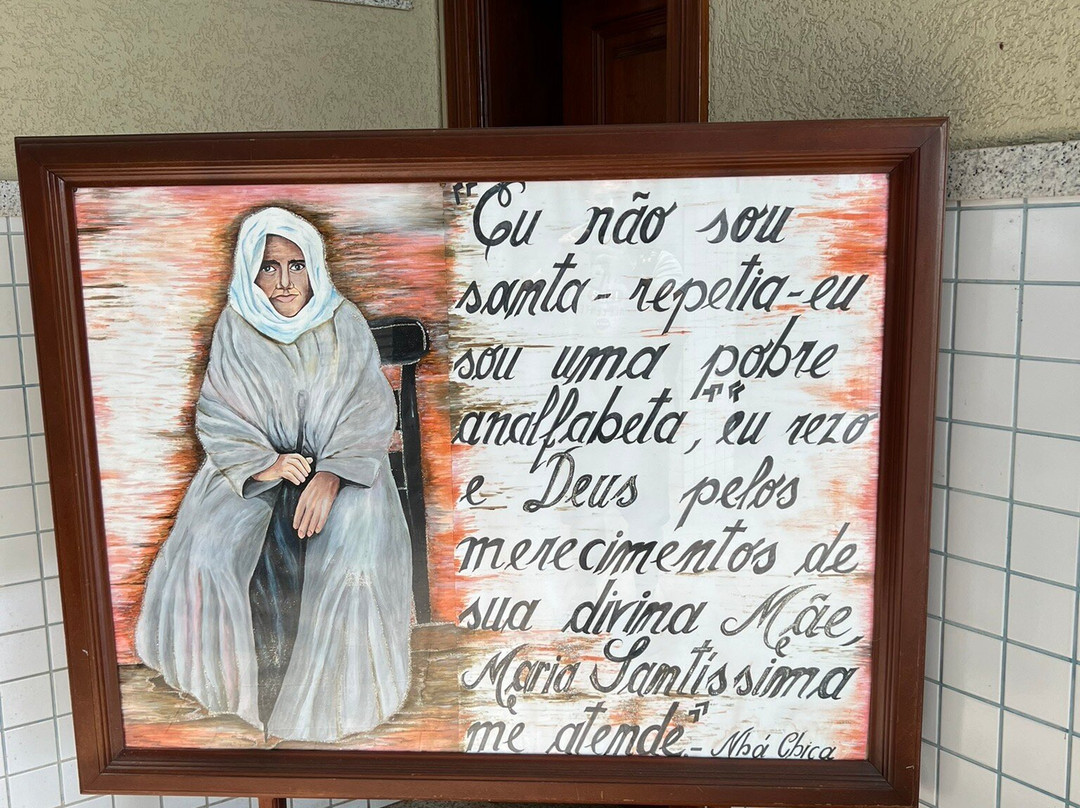 "Eu não sou
santa - repetia - eu
sou uma pobre
analfabeta", "eu rezo
e Deus pelos
merecimentos de
sua divina Mãe,
Maria Santíssima
me atende". - Nhá Chica